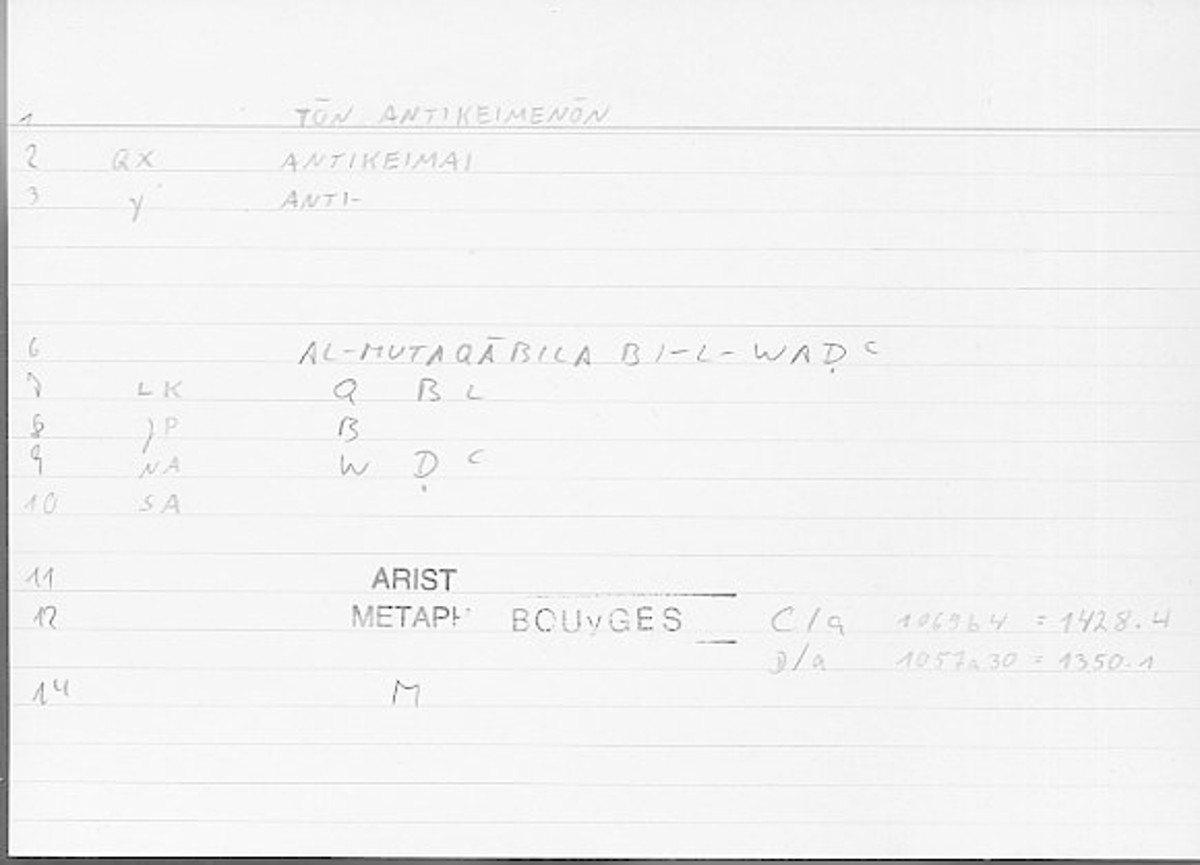 1 TŌN ANTIKEIMENŌN
2 QX ANTIKEIMAI
3 γ ANTI-
6 AL-MUTAQĀBILA BI-L-WAḌ ᶜ
7 LK Q B L
8 )P B
9 NA W Ḍ ᶜ
10 SA
11 ARIST
12 METAPH BOUYGES C/a 1069b4 = 1428.4
D/a 1057a30 = 1350.1
14 M